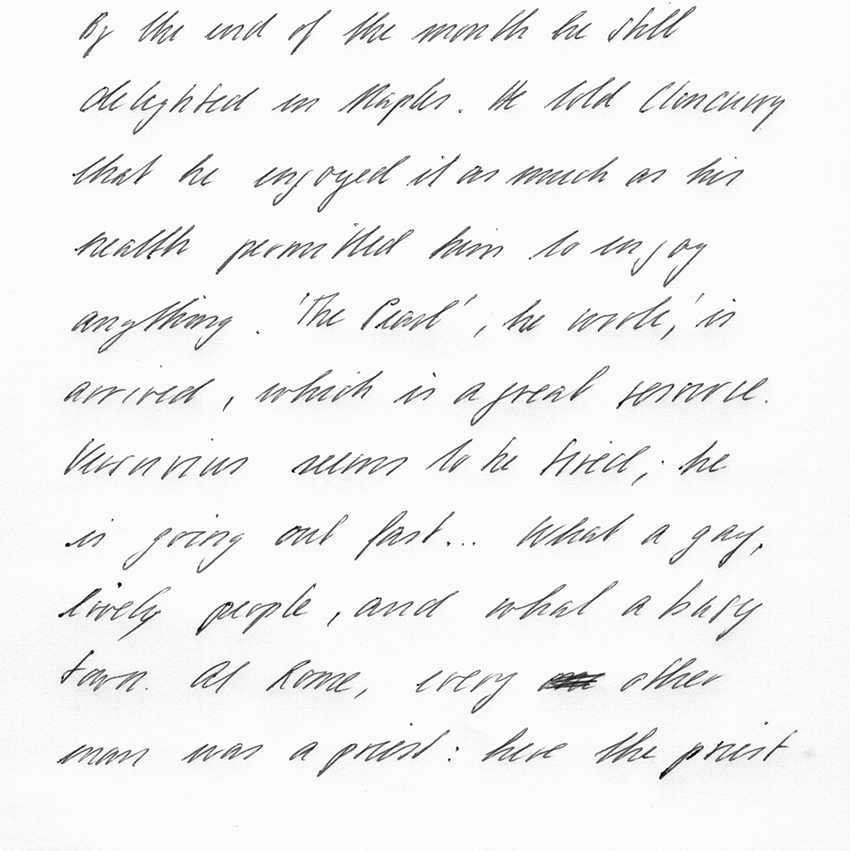 By the end of the month he still
delighted in Naples. He told Cloncurry
that he enjoyed it as much as his
health permitted him to enjoy
anything. 'The Pearl', he wrote,' is
arrived, which is a great resource.
Vesuvius seems to be tired; he
is going out fast... What a gay,
lively people, and what a busy
town. At Rome, every other
man was a priest: here the priest